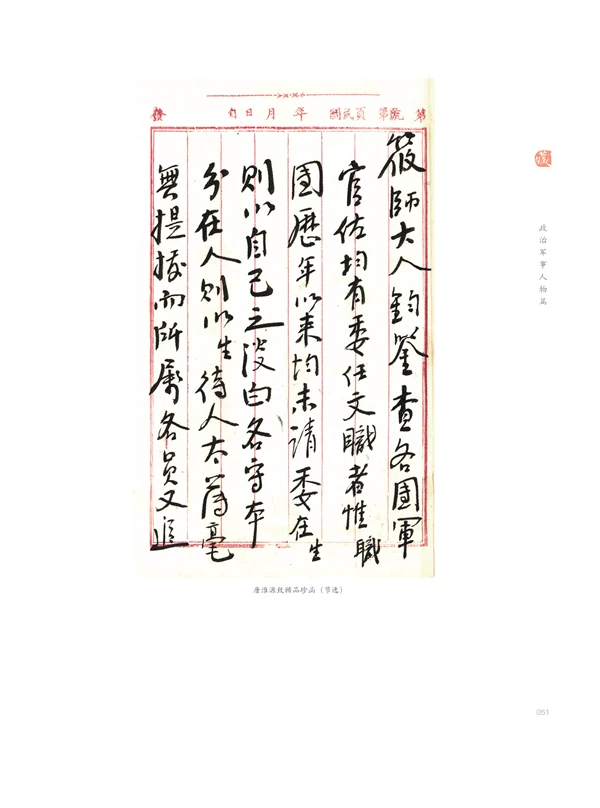 第 號第 頁民國 年 月 日自 發
筱師大人鈞鑒查各團軍
官佐均有委任文職者惟職
團歷年以来均未請委在生
則以自己之没由各守本
分在人則以生待人太薄毫
無提拔而所屬各員又追
唐淮源致顾品珍函（节选）
政治军事人物篇
051